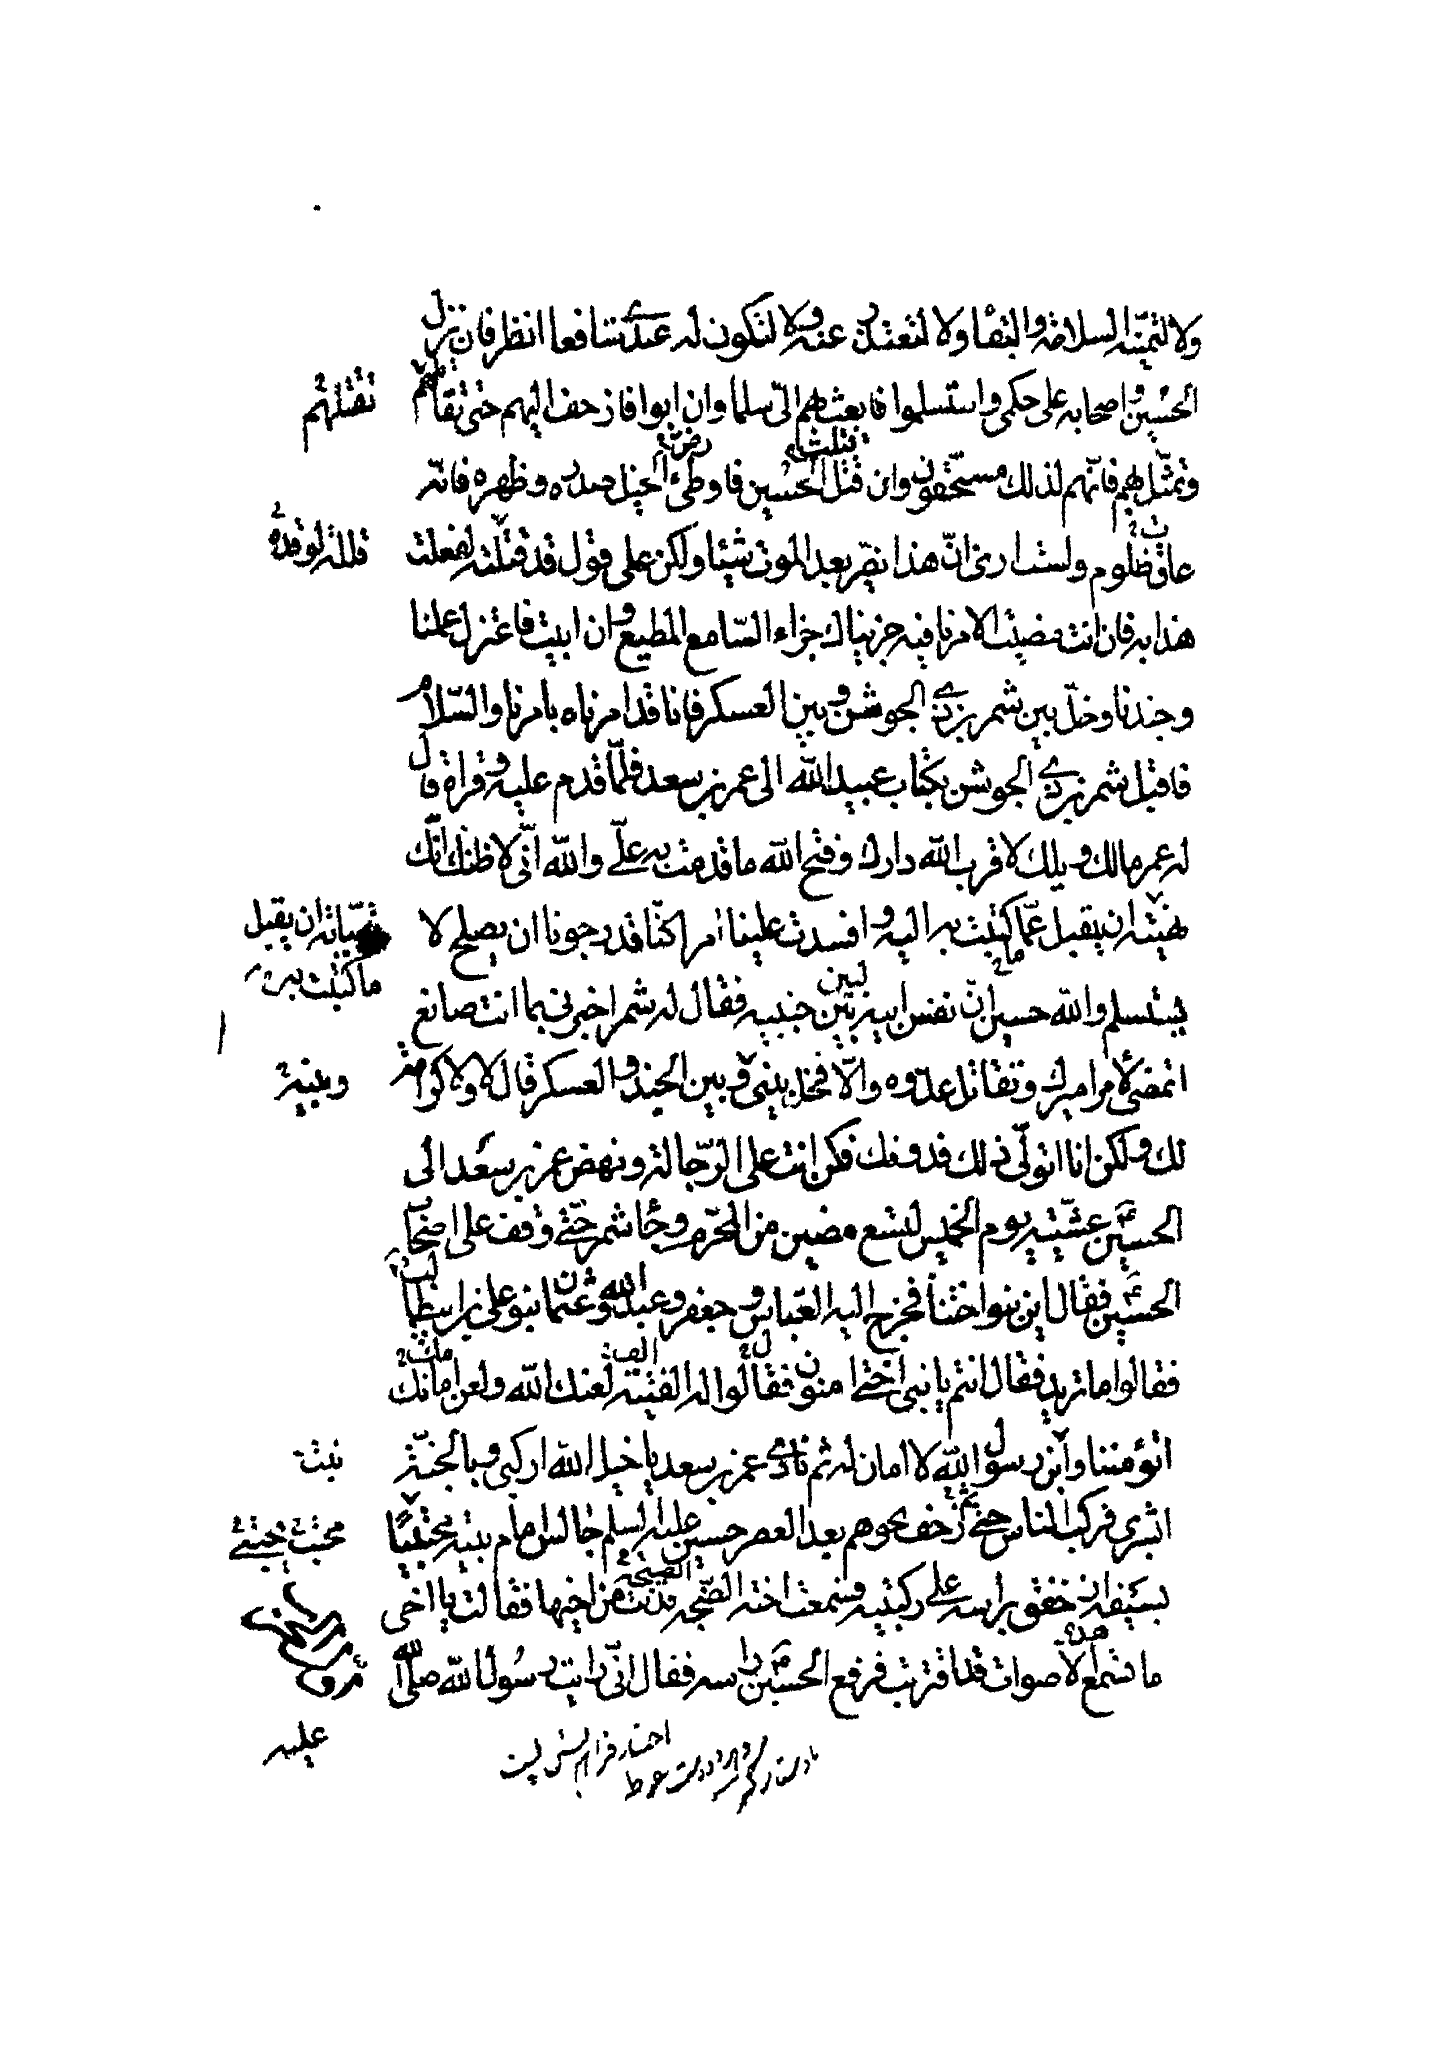 ولا لتمنيه السلامة والبقا ولا لتعتذر عنه ولا لتكون له عندي شافعا انظر فان نزل
الحسين واصحابه على حكمي واستسلموا فابعث بهم الىّ سلما وان ابوا فازحف اليهم حتى تقاتلهم
تقتلهم
وتمثّل بهم فانّهم لذلك مستحقّون وان قتل الحسين فاوطئ الخيل صدره وظهره فانّه
قتلت
عاق ظلوم ولست ارى انّ هذا يضر بعد الموت شيئا ولكن على قول قد قتلته لفعلت
قلته لو قد
هذا به فان انت مضيت لامرنا فيه جزيناك جزاء السّامع المطيع وان ابيت فاعتزل عملنا
وجندنا وخلّ بين شمر بن ذي الجوشن وبين العسكر فانا قد امرناه بامرنا والسّلام
فاقبل شمر بن ذي الجوشن بكتاب عبيد الله الى عمر بن سعد فلمّا قدم عليه وقراه قال
له عمر مالك ويلك لا قرب الله دارك وقبح الله ما قدمت به علىّ والله انّى لاظنك انّك
نهيته ان يقبل عمّا كتبت به اليه وافسدت علينا امرا كنّا قد رجونا ان يصلح لا
ان يقبل
ما كتبت به
يستسلم والله حسين انّ نفس ابيه لبين جنبيه فقال له شمر اخبرنى بما انت صانع
اتمضى لامر اميرك وتقاتل عدّوه والّا فخل بينى وبين الجند والعسكر قال لا ولا كرامة
وبينه
لك ولكن انا اتولّى ذلك فدونك فكن انت على الرّجالة ونهض عمر بن سعد الى
الحسين عشيّة يوم الخميس لتسع مضين من المحرّم وجا شمر حتّى وقف على اصحاب
الحسين فقال اين بنو اختنا فخرج اليه العبّاس وجعفر وعبد الله وعثمان بنو على بن ابيطالب
فقالوا ما تريد فقال انتم يا بنى اختى امنون فقالوا له الفتية لعنك الله ولعن امانك
اتؤمننا وابن رسول الله لا امان له ثم نادى عمر بن سعد يا خيل الله اركبى وبالجنّة
ابشرى فركب الناس حتى زحف نحوهم بعد العصر وحسين عليه السلم جالس امام بيته محتبيا
بسيفه اذ خفق براسه على ركبتيه وسمعت اخته الصّيحة فدنت من اخيها فقالت يا اخى
ما تسمع الاصوات قد اقتربت فرفع الحسين راسه فقال انّى رايت رسول الله صلّى الله
عليه